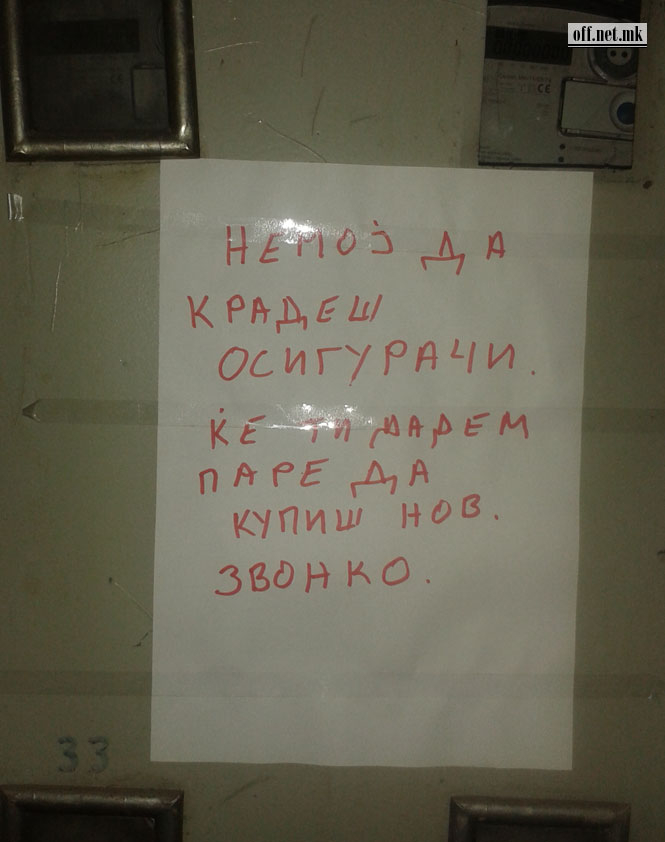 off.net.mk
НЕМОЈ ДА
КРАДЕШ
ОСИГУРАЧИ.
ЌЕ ТИ ДАДЕМ
ПАРЕ ДА
КУПИШ НОВ.
ЗВОНКО.
33